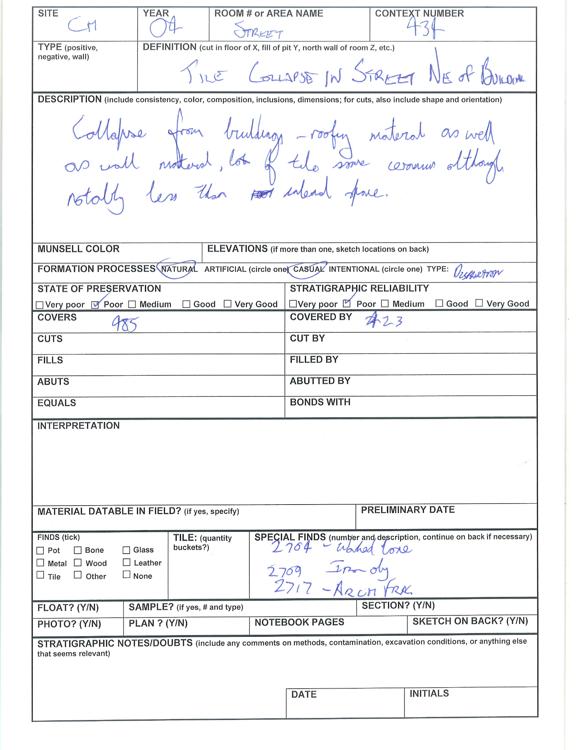 SITE YEAR ROOM # or AREA NAME CONTEXT NUMBER
CM 04 STREET 434
TYPE (positive, negative, wall) DEFINITION (cut in floor of X, fill of pit Y, north wall of room Z, etc.)
TILE COLLAPSE IN STREET NE OF BUILDING
DESCRIPTION (include consistency, color, composition, inclusions, dimensions; for cuts, also include shape and orientation)
Collapse from buildings - roofing material as well
as wall material, lots of tile some ceramics although
notably less than inland space.
MUNSELL COLOR ELEVATIONS (if more than one, sketch locations on back)
FORMATION PROCESSES NATURAL ARTIFICIAL (circle one) CASUAL INTENTIONAL (circle one) TYPE:
STATE OF PRESERVATION STRATIGRAPHIC RELIABILITY
Very poor Poor Medium Good Very Good Very poor Poor Medium Good Very Good
COVERS 985 COVERED BY 423
CUTS CUT BY
FILLS FILLED BY
ABUTS ABUTTED BY
EQUALS BONDS WITH
INTERPRETATION
MATERIAL DATABLE IN FIELD? (if yes, specify) PRELIMINARY DATE
FINDS (tick) TILE: (quantity buckets?) SPECIAL FINDS (number and description, continue on back if necessary)
Pot Bone Glass
Metal Wood Leather
Tile Other None
2704 - Worked bone
2709 Iron obj
2717 - ARCH FRAG
FLOAT? (Y/N) SAMPLE? (if yes, # and type) SECTION? (Y/N)
PHOTO? (Y/N) PLAN ? (Y/N) NOTEBOOK PAGES SKETCH ON BACK? (Y/N)
STRATIGRAPHIC NOTES/DOUBTS (include any comments on methods, contamination, excavation conditions, or anything else
that seems relevant)
DATE INITIALS